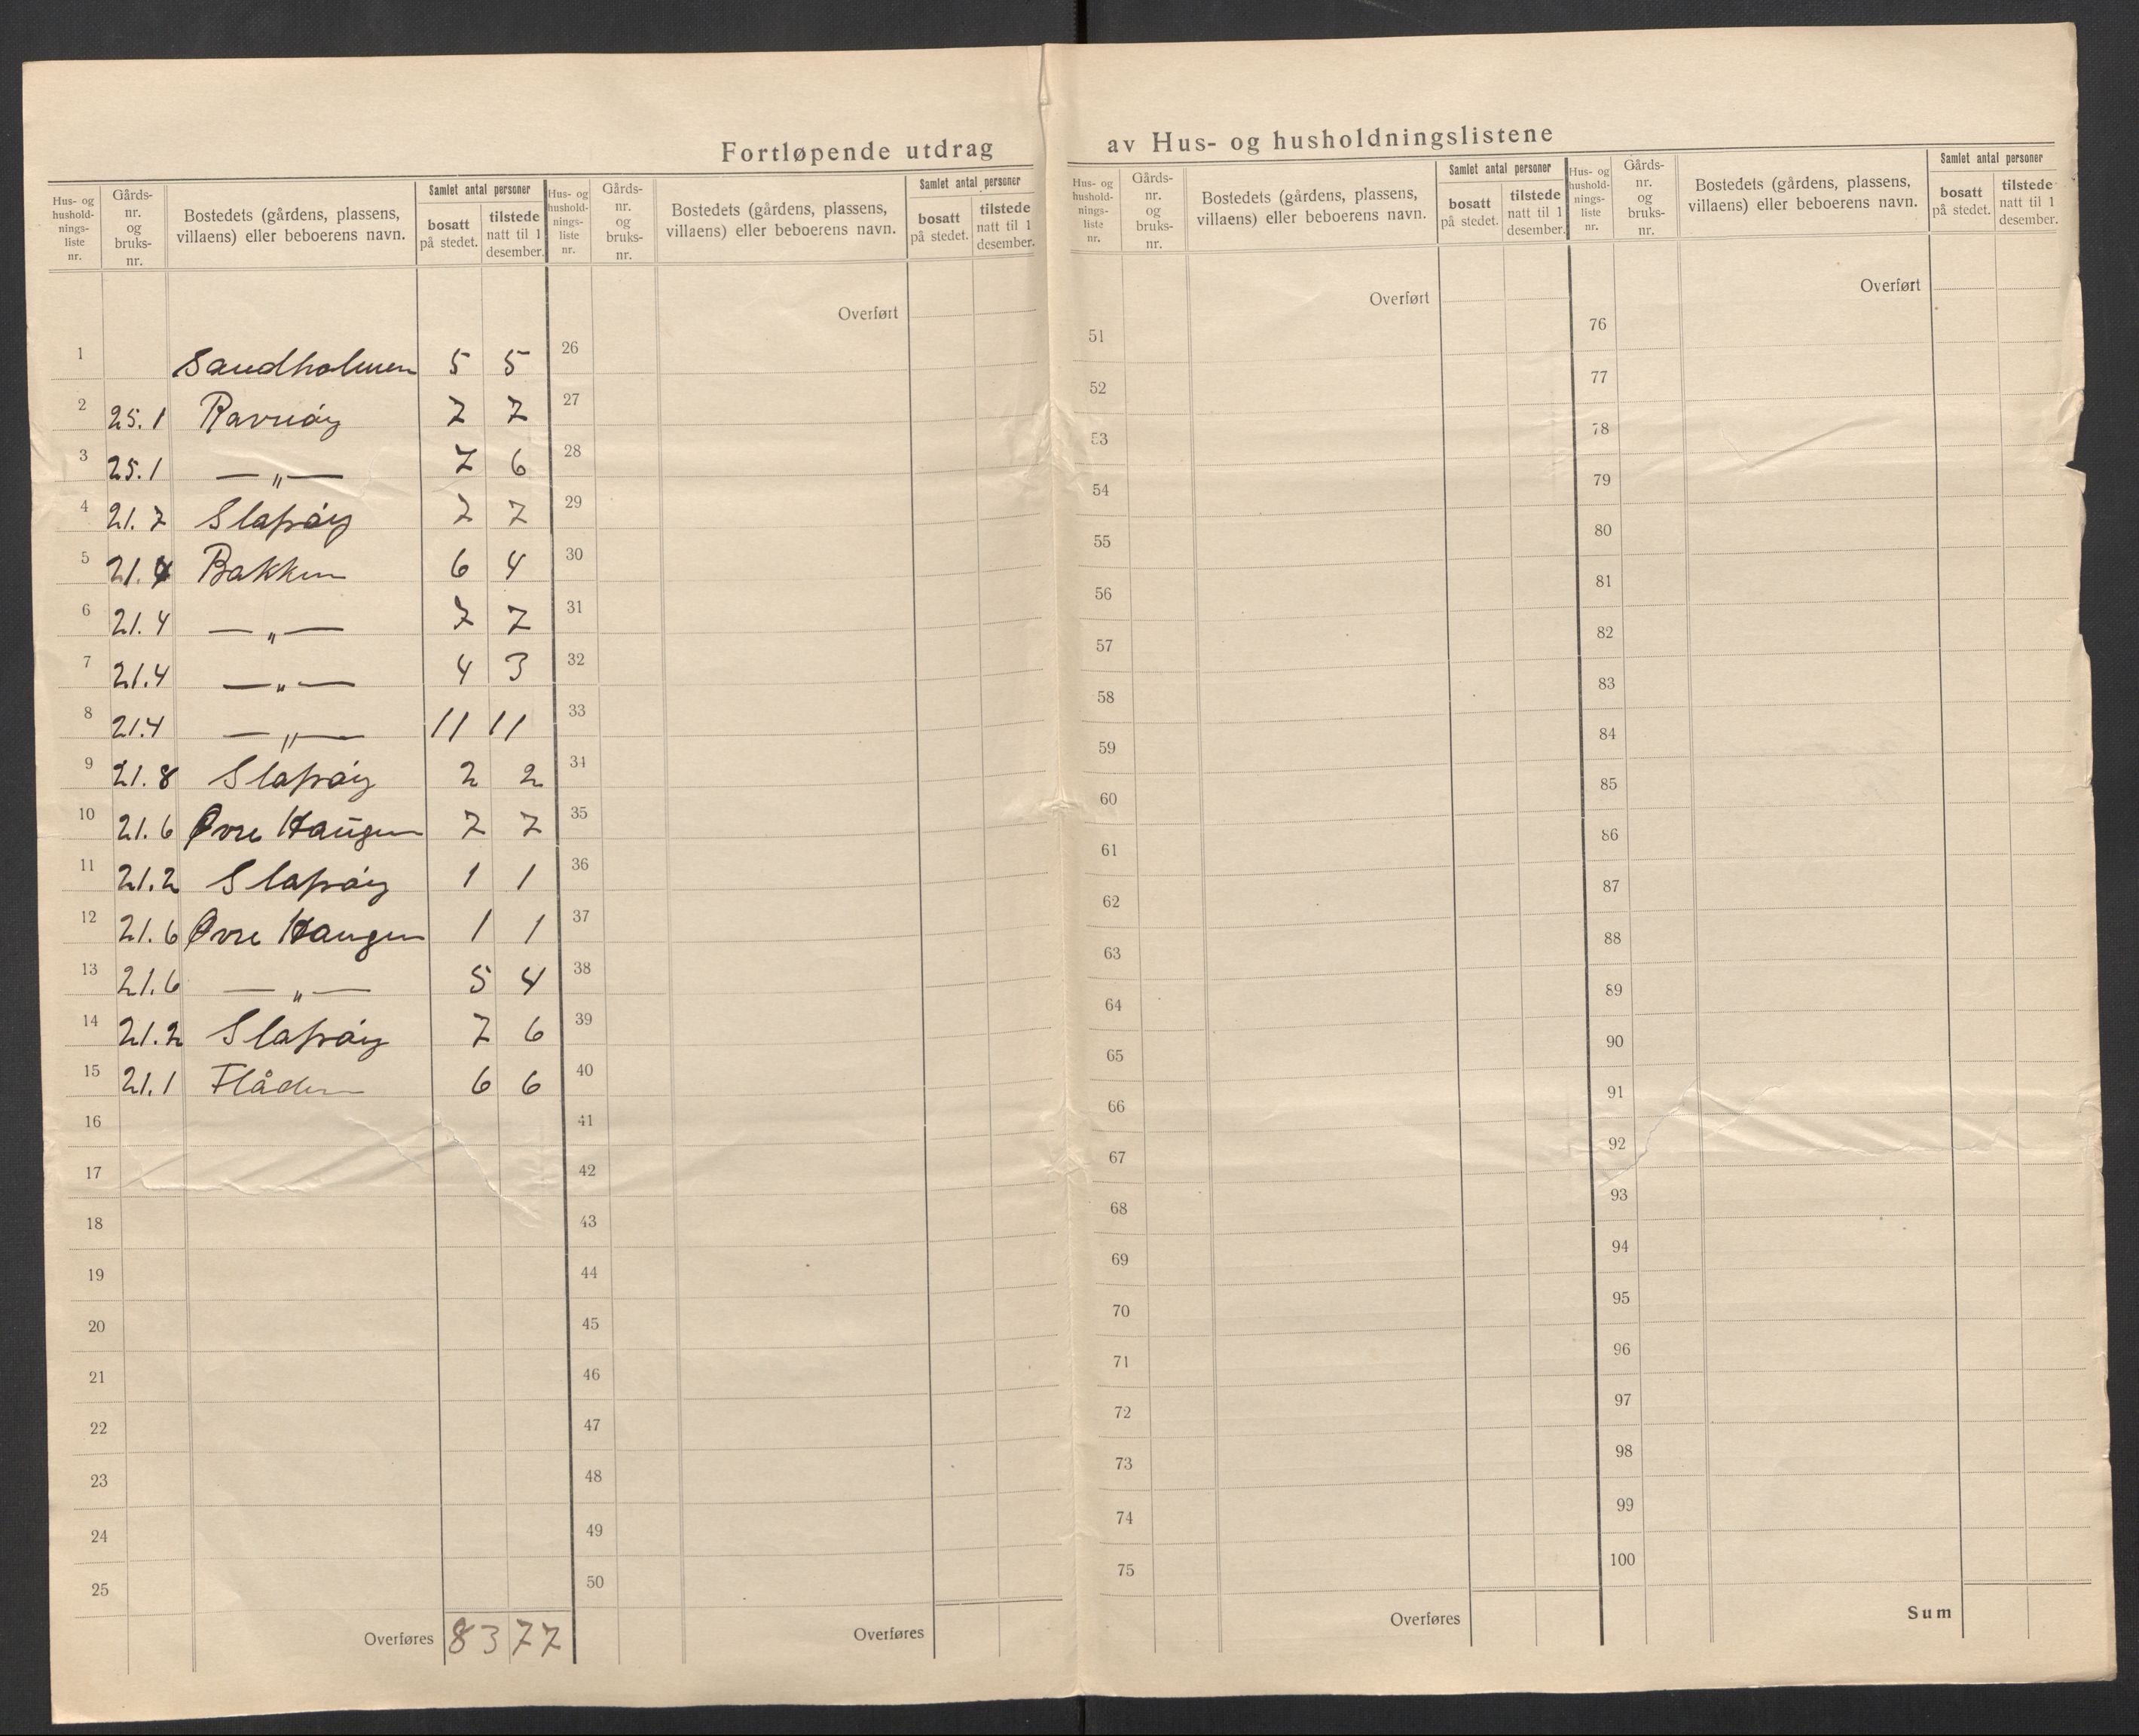 Fortløpende utdrag av Hus- og husholdningslistene
Hus- og hushold-nings-liste nr. Gårds-nr. og bruks-nr. Bostedets (gårdens, plassens, villaens) eller beboerens navn. Samlet antal personer bosatt på stedet. tilstede natt til 1 desember.
1 Sandholmen 5 5
2 25.1 Ravnøy 7 7
3 25.1 — „ — 7 6
4 21.7 Slapøy 7 7
5 21.4 Bakken 6 4
6 21.4 — „ — 7 7
7 21.4 — „ — 4 3
8 21.4 — „ — 11 11
9 21.8 Slapøy 2 2
10 21.6 Øvre Haugen 7 7
11 21.2 Slapøy 1 1
12 21.6 Øvre Haugen 1 1
13 21.6 — „ — 5 4
14 21.2 Slapøy 7 6
15 21.1 Flåden 6 6
16
17
18
19
20
21
22
23
24
25
Overføres 83 77
Hus- og hushold-nings-liste nr. Gårds-nr. og bruks-nr. Bostedets (gårdens, plassens, villaens) eller beboerens navn. Samlet antal personer bosatt på stedet. tilstede natt til 1 desember.
Overført
26
27
28
29
30
31
32
33
34
35
36
37
38
39
40
41
42
43
44
45
46
47
48
49
50
Overføres
Hus- og hushold-nings-liste nr. Gårds-nr. og bruks-nr. Bostedets (gårdens, plassens, villaens) eller beboerens navn. Samlet antal personer bosatt på stedet. tilstede natt til 1 desember.
Overført
51
52
53
54
55
56
57
58
59
60
61
62
63
64
65
66
67
68
69
70
71
72
73
74
75
Overføres
Hus- og hushold-nings-liste nr. Gårds-nr. og bruks-nr. Bostedets (gårdens, plassens, villaens) eller beboerens navn. Samlet antal personer bosatt på stedet. tilstede natt til 1 desember.
Overført
76
77
78
79
80
81
82
83
84
85
86
87
88
89
90
91
92
93
94
95
96
97
98
99
100
Sum